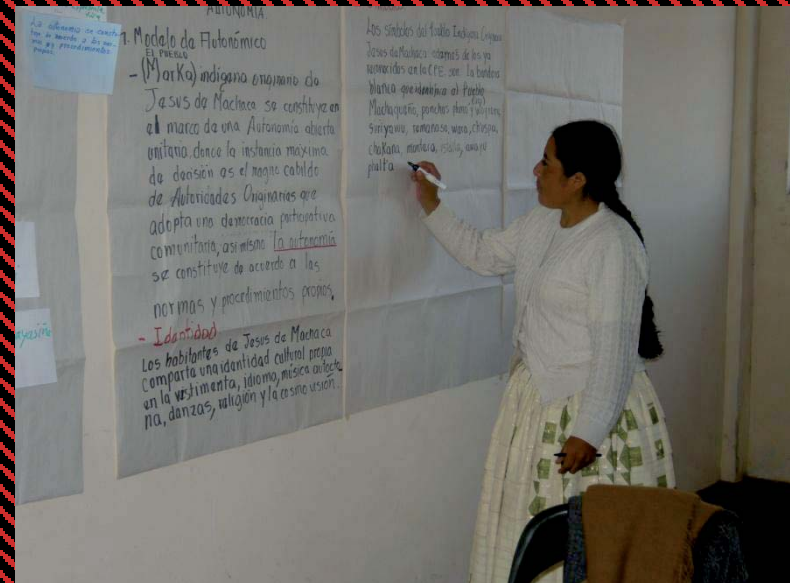 La autonomía se constru
de acuerdo a las nor
mas y procedimientos
propios
AUTONOMIA
1. Modelo de Autonómico
EL PUEBLO
- (Marka) indígena originario de
Jesus de Machaca se constituye en
el marco de una Autonomía abierta
unitaria donde la instancia máxima
de decisión es el magno cabildo
de Autoridades Originarias que
adopta una democracia participativa
comunitaria, asi mismo la autonomía
se constituye de acuerdo a las
normas y procedimientos propios.
- Identidad
Los habitantes de Jesus de Machaca
comparte una identidad cultural propia
en la vestimenta, idioma, música autocto
na, danzas, religión y la cosmo visión.
Los símbolos del Pueblo Indígena Originario
Jesus de Machaca además de los ya
reconocidos en la C.P.E. son la bandera
blanca que identifica al Pueblo
Machaqueño, ponchos
chakana, awayu
phalta